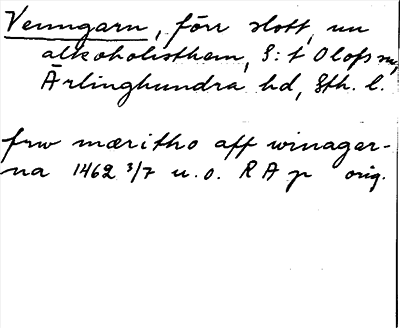 Venngarn, förr slott, nu
alkoholisthem, S:t Olofs sn,
Ärlinghundra hd, Sth. l.
frw mæritho aff winagar-
na 1462 3/7 u.o. RA p orig.